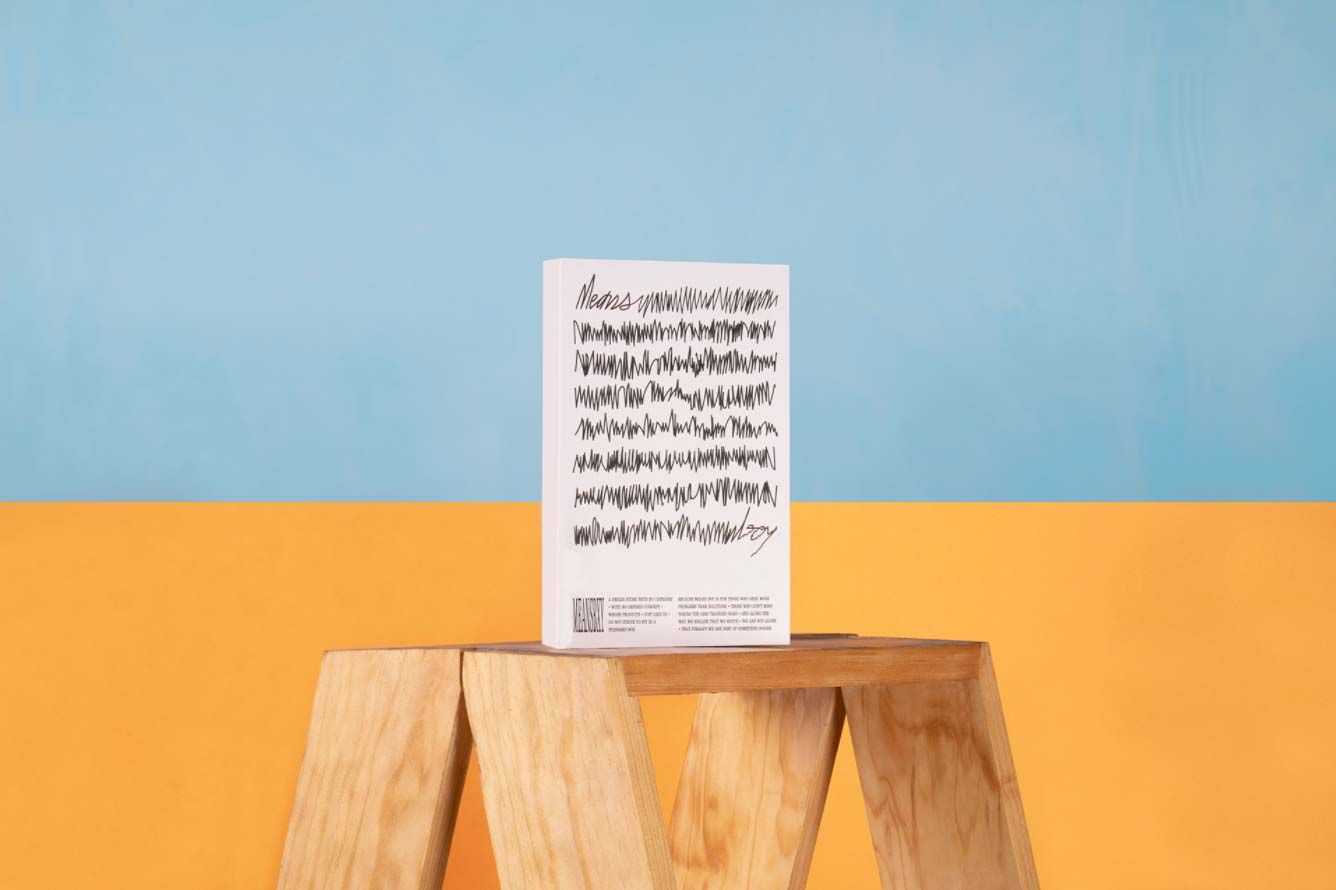 Means
boy
MEANSBYI
A DESIGN STORE WITH NO CATEGORY
• WITH NO DEFINED CONCEPT •
WHOSE PRODUCTS • JUST LIKE US •
DO NOT STRIVE TO FIT IN A
STANDARD BOX
BECAUSE MEANS BOY IS FOR THOSE WHO SEEK MORE
PROBLEMS THAN SOLUTIONS • THOSE WHO DON'T MIND
TAKING THE LESS TRAVELED ROAD • AND ALONG THE
WAY WE REALIZE THAT WE MISFITS • WE ARE NOT ALONE
• THAT PERHAPS WE ARE PART OF SOMETHING BIGGER